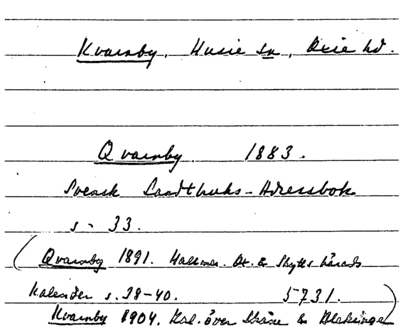 Kvarnby, Husie sn, Oxie hd.
Qvarnby 1883.
Svensk Landtbruks-Adressbok
s. 33.
(Qvarnby 1891. Ox. & Skytts härads
Kalender s. 38-40. 5731.)
Kvarnby 1904. Kal. över Skåne & Blekinge